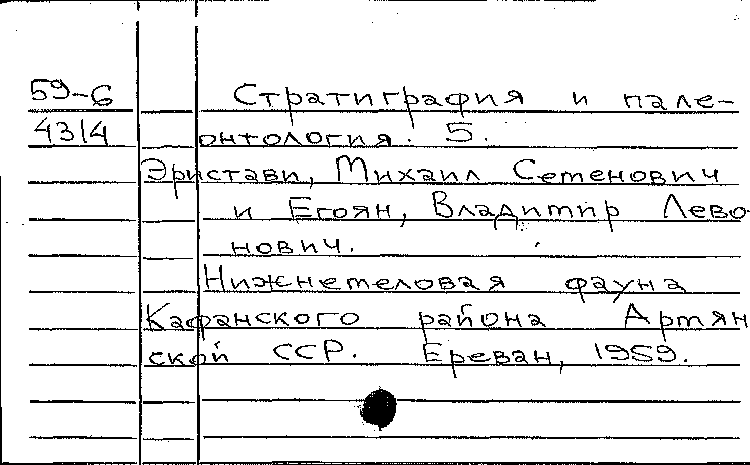 59-6 Стратиграфия и пале-
4314 онтология. 5.
Эристави, Михаил Семенович
и Егоян, Владимир Лево
нович.
Нижнемеловая фауна
Кафанского района Армян
ской ССР. Ереван, 1959.